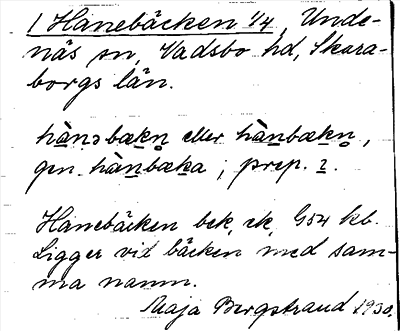 1 Hanebäcken 1/4, Unde-
näs sn, Vadsbo hd, Skara-
borgs län.
hànəbækn̥ eller hàn̠bækn̥,
gen. hàn̠bæka; prep. i.
Hanebäcken bek, ek, G54 kb.
Ligger vid bäcken med sam-
ma namn.
Maja Bergstrand 1930.